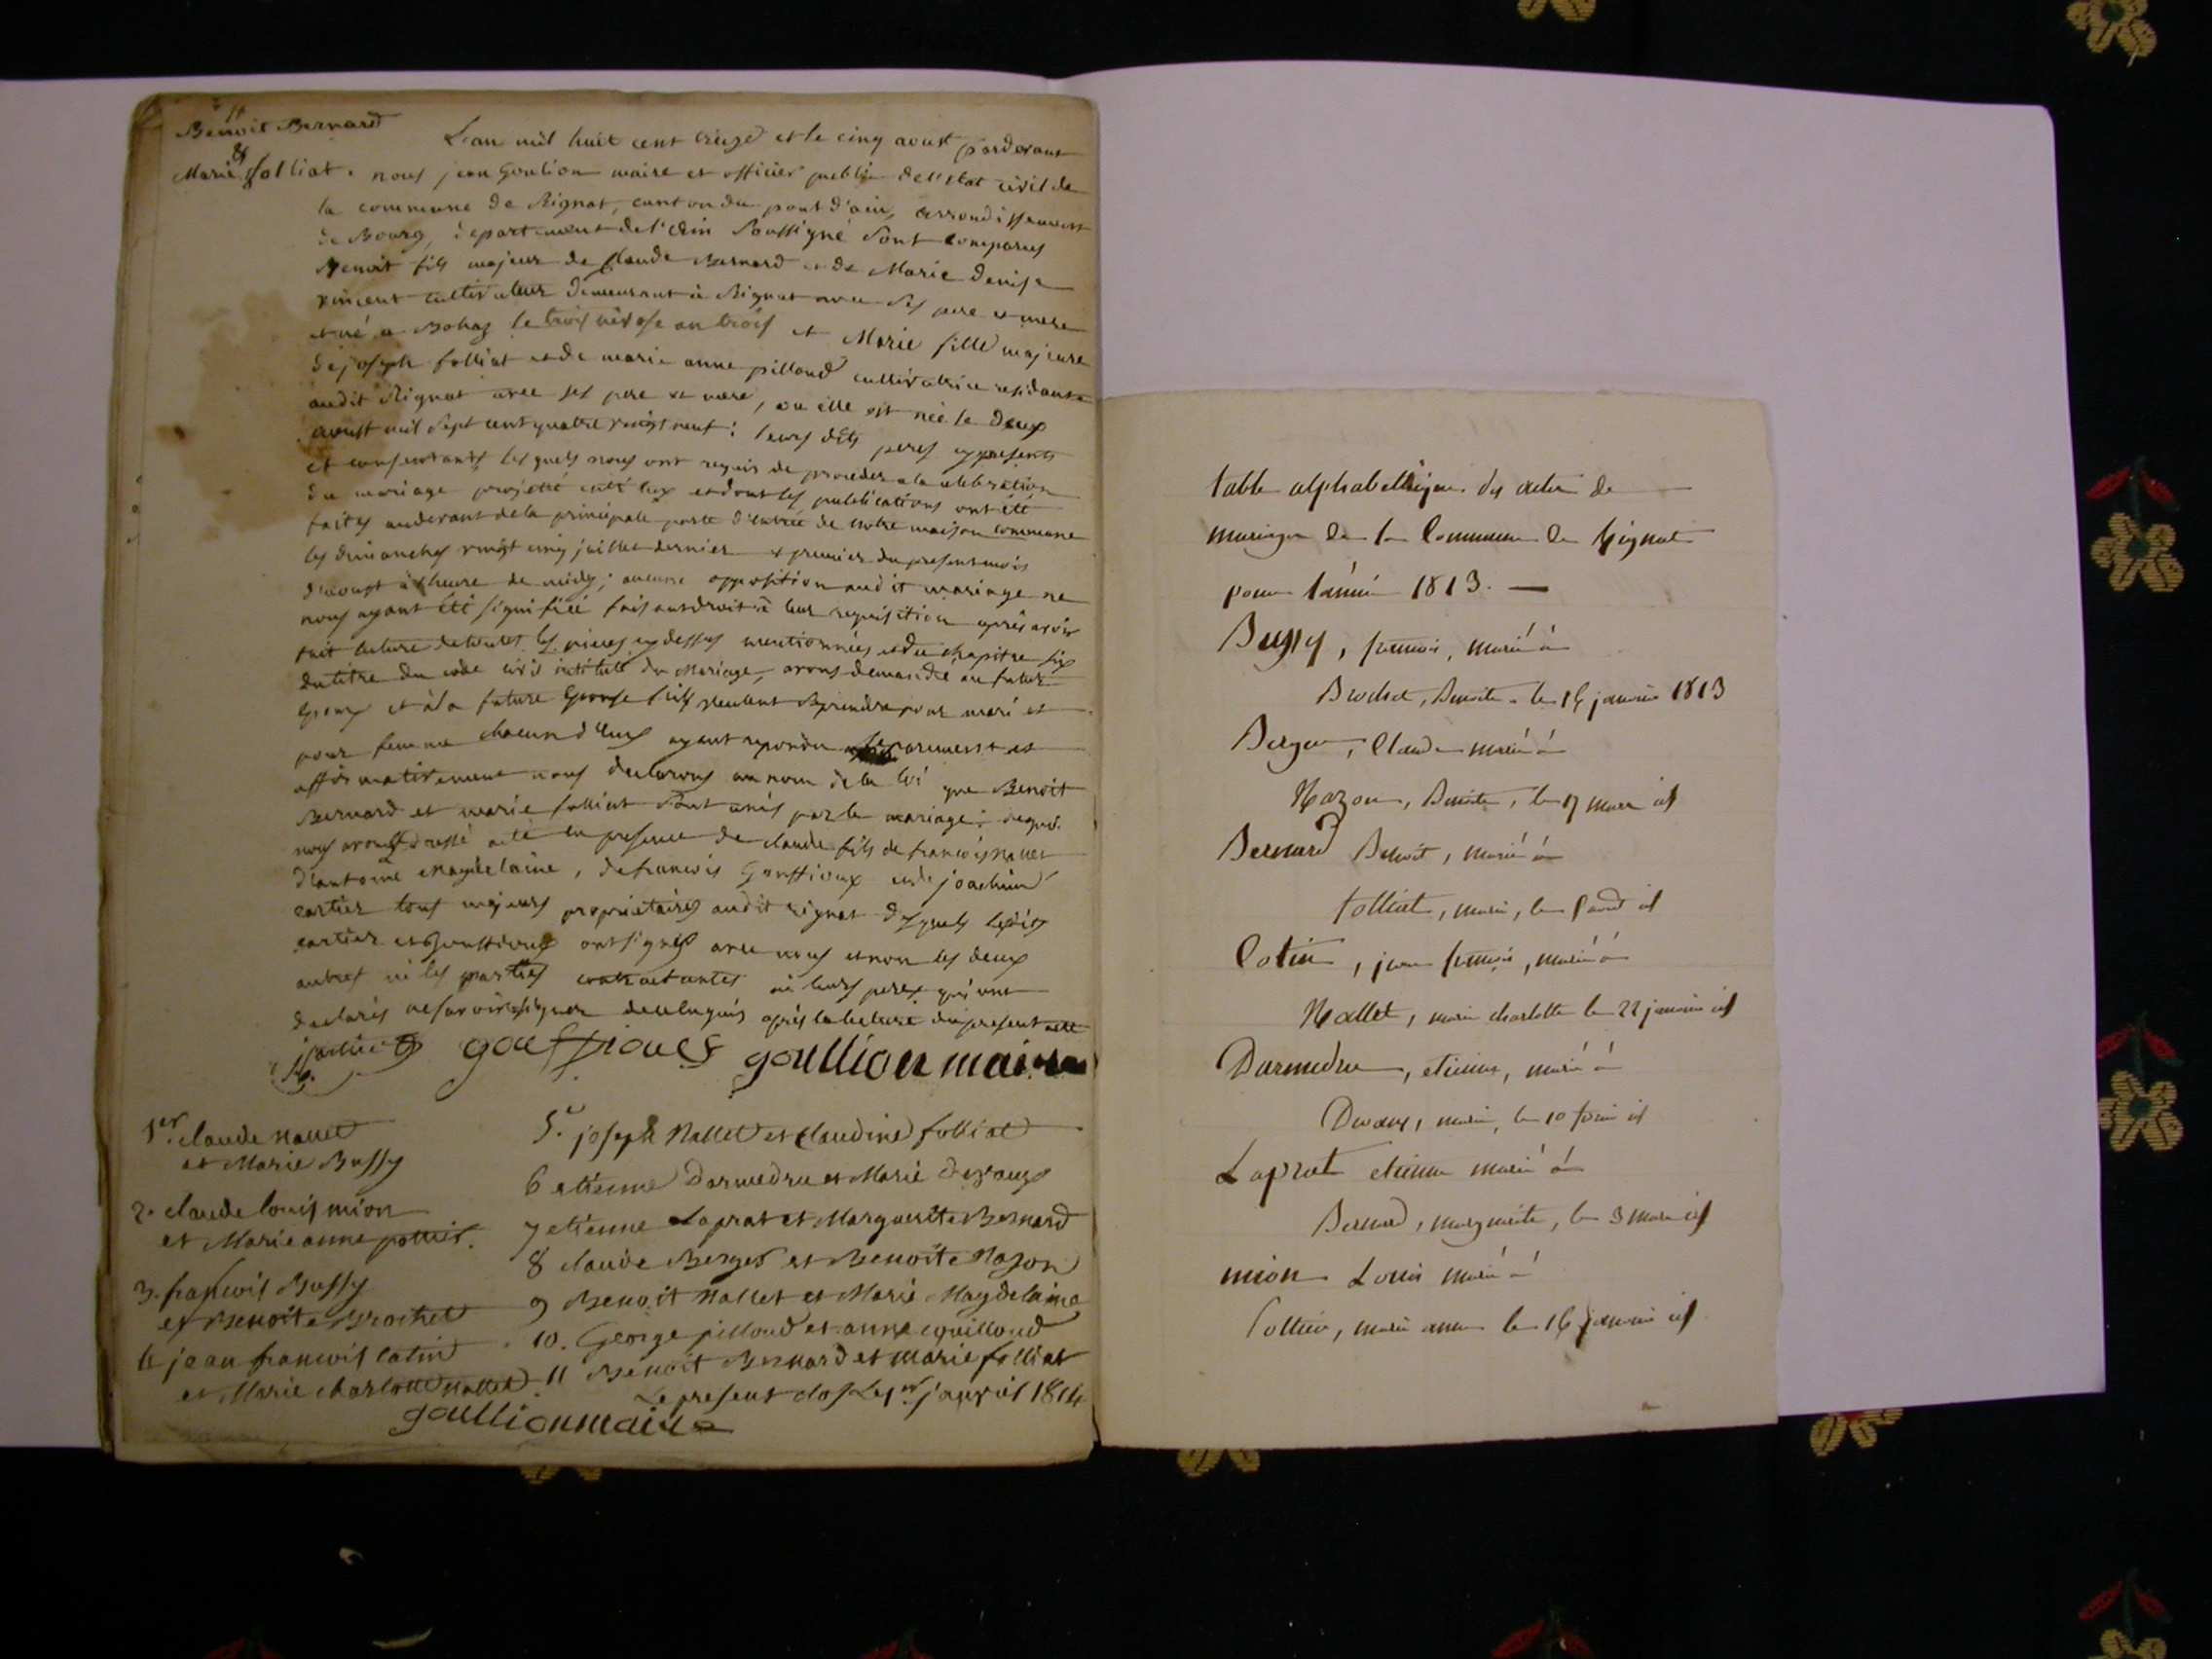 11
Benoit Bernard
&
Marie folliat.
L'an mil huit cent treize et le cinq aoust pardevant
nous jean Goulion maire et officier public de l'etat civil de
la commune de Rignat, canton du pont d'ain, arrondissement
de Bourg, departement de l'ain soussigné sont comparus
Benoit fils majeur de Claude Bernard et de Marie denise
vincent cultivateur demeurant à Rignat avec ses pere et mere
et né a Bohaz le trois nivose an trois et Marie fille majeure
de joseph folliat et de marie anne pilloud cultivatrice residante
audit Rignat avec ses pere et mere, ou elle est née le deux
aoust mil sept cent quatre vingt neuf: leurs dits peres cy presents
et consentants lesquels nous ont requis de proceder a la celebration
du mariage projetté entre eux et dont les publications ont été
faites audevant de la principale porte d'entrée de notre maison commune
les dimanches vingt cinq juillet dernier et premier du present mois
d'aoust à l'heure de midy; aucune opposition audit mariage ne
nous ayant été signifiée faisant droit à leur requisition après avoir
fait lecture de toutes les pieces cy dessus mentionnées et du chapitre six
du titre du code civil intitulé du Mariage, avons demandé au futur
epoux et à la future epouse s'ils veulent se prendre pour mari et
pour femme chacun d'eux ayant repondu separement et
affirmativement nous declarons au nom de la loi que Benoit
Bernard et marie folliat sont unis par le mariage: de quoi
nous avons dressé acte en presence de claude fils de françois nallet
d'antoine Maydelaine, de francois Gouffioux et de joachim
cartier tous majeurs proprietaires audit rignat desquels lesdits
cartier et Gouffioux ont signés avec nous et non les deux
autres ni les parties contractantes ni leurs peres qui ont
declarés ne savoir signer de ce enquis après la lecture du present acte
gouffioues goullion maire
1er. claude nallet
et Marie Bussy
2. claude louis mion
et Marie anne pottier.
3. francois Bussy
et Benoite Brochet
4 jean francois catin
et Marie charlotte nallet
5e. joseph Nallet et claudine folliat
6 etienne Darmedru et Marie devaux
7 etienne Laprat et Marguerite Bernard
8 claude Berger et Benoite Nazon
9 Benoit Nallet et Marie Maydelaine
10. George pilloud et anne cquilloud
11 Benoit Bernard et marie folliat
Le present clos Le 1er. janvier 1814
goullion maire
table alphabettique des actes de
mariages de la Commune de Rignat
pour l'année 1813. —
Bussy, francois, marié à
Brochet, Benoite - le 16 janvier 1813
Berger, Claude marié à
Nazon, Benoite, le 17 mars id
Bernard Benoit, marié à
folliat, marie, le 5 aout id
Catin, jean francois, marié à
Nallet, marie charlotte le 22 janvier id
Darmedru, etienne, marié à
Devaux, marie, le 10 fevrier id
Laprat etienne marié à
Bernard, marguerite, le 3 mars id
mion Louis marié à
Pottier, marie anne le 16 janvier id